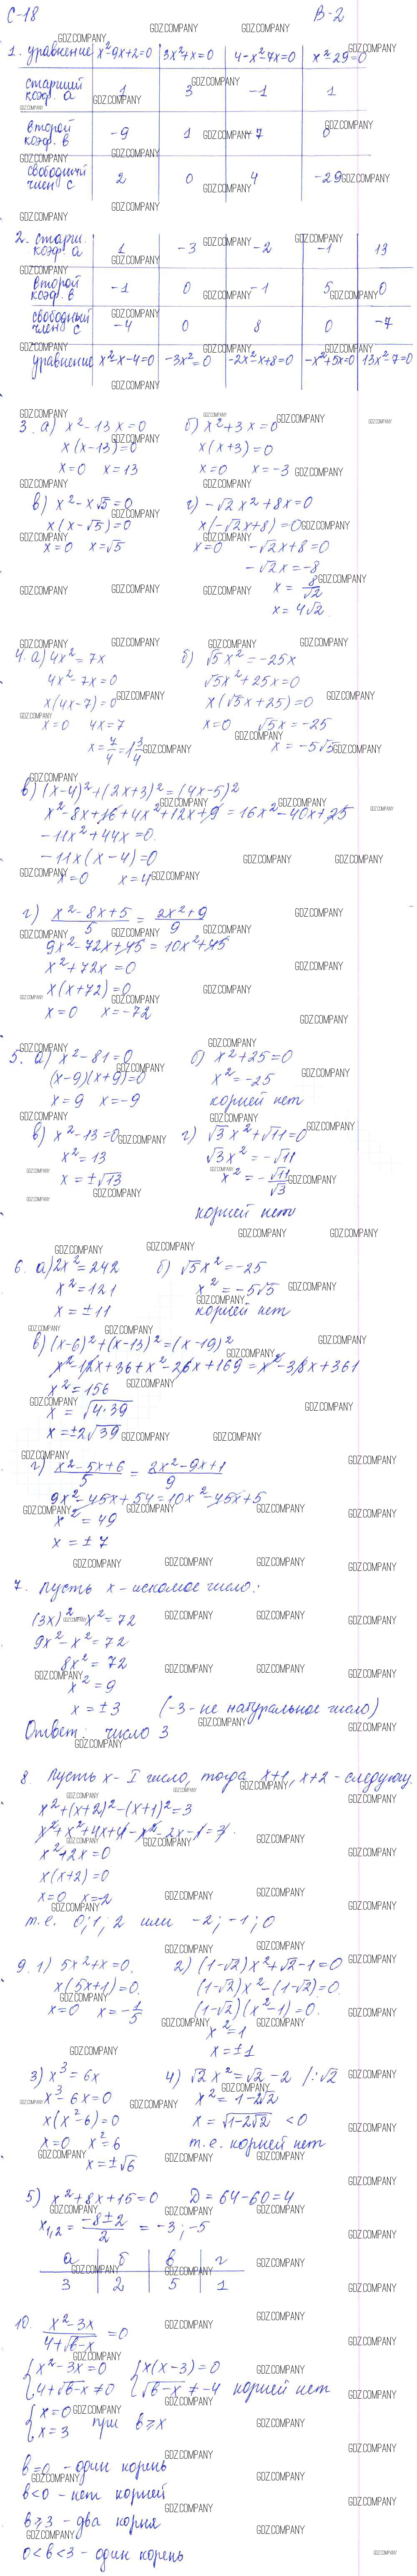 С-18 В-2
1. уравнение x²-9x+2=0 3x²+x=0 4-x²-7x=0 x²-29=0
старший коэф. a 1 3 -1 1
второй коэф. b -9 1 -7 0
свободный член c 2 0 4 -29
2. старш. коэф. a 1 -3 -2 -1 13
второй коэф. b -1 0 -1 5 0
свободный член c -4 0 8 0 -7
уравнение x²-x-4=0 -3x²=0 -2x²-x+8=0 -x²+5x=0 13x²-7=0
3. а) x²-13x=0 б) x²+3x=0
x(x-13)=0 x(x+3)=0
x=0 x=13 x=0 x=-3
в) x²-x√5=0 г) -√2x²+8x=0
x(x-√5)=0 x(-√2x+8)=0
x=0 x=√5 x=0 -√2x+8=0
-√2x=-8
x=8/√2
x=4√2.
4. а) 4x²=7x б) √5x²=-25x
4x²-7x=0 √5x²+25x=0
x(4x-7)=0 x(√5x+25)=0
x=0 4x=7 x=0 √5x=-25
x=7/4=1 3/4 x=-5√5
в) (x-4)²+(2x+3)²=(4x-5)²
x²-8x+16+4x²+12x+9=16x²-40x+25
-11x²+44x=0.
-11x(x-4)=0
x=0 x=4
г) (x²-8x+5)/5=(2x²+9)/9
9x²-72x+45=10x²+45
x²+72x=0
x(x+72)=0
x=0 x=-72
5. а) x²-81=0 б) x²+25=0
(x-9)(x+9)=0 x²=-25
x=9 x=-9 корней нет
в) x²-13=0 г) √3x²+√11=0
x²=13 √3x²=-√11
x=±√13 x²=-√11/√3
корней нет
6. а) 2x²=242 б) √5x²=-25
x²=121 x²=-5√5
x=±11 корней нет
в) (x-6)²+(x-13)²=(x-19)²
x²-12x+36+x²-26x+169=x²-38x+361
x²=156
x=√4·39
x=±2√39
г) (x²-5x+6)/5=(2x²-9x+1)/9
9x²-45x+54=10x²-45x+5
x²=49
x=±7
7. Пусть x - искомое число:
(3x)²-x²=72
9x²-x²=72
8x²=72
x²=9
x=±3 (-3 - не натуральное число)
Ответ: число 3
8 Пусть x - I число, тогда x+1, x+2 - следующ.
x²+(x+2)²-(x+1)²=3
x²+x²+4x+4-x²-2x-1=3.
x²+2x=0
x(x+2)=0
x=0 x=-2
т.е. 0;1;2 или -2;-1;0
9. 1) 5x²+x=0. 2) (1-√2)x²+√2-1=0
x(5x+1)=0. (1-√2)x²-(1-√2)=0.
x=0 x=-1/5 (1-√2)(x²-1)=0.
x²=1
x=±1
3) x³=6x 4) √2x²=√2-2 /:√2
x³-6x=0 x²=1-2√2
x(x²-6)=0 x=√1-2√2 <0
x=0 x²=6 т.е. корней нет
x=±√6
5) x²+8x+15=0 D=64-60=4
x1,2=(-8±2)/2=-3;-5
а б в г
3 2 5 1
10. (x²-3x)/(4+√b-x)=0
{x²-3x=0 {x(x-3)=0
{4+√b-x≠0 {√b-x≠-4 корней нет
{x=0
{x=3 при b≥x
b=0 - один корень
b<0 - нет корней
b≥3 - два корня
0<b<3 - один корень
GDZ.COMPANY